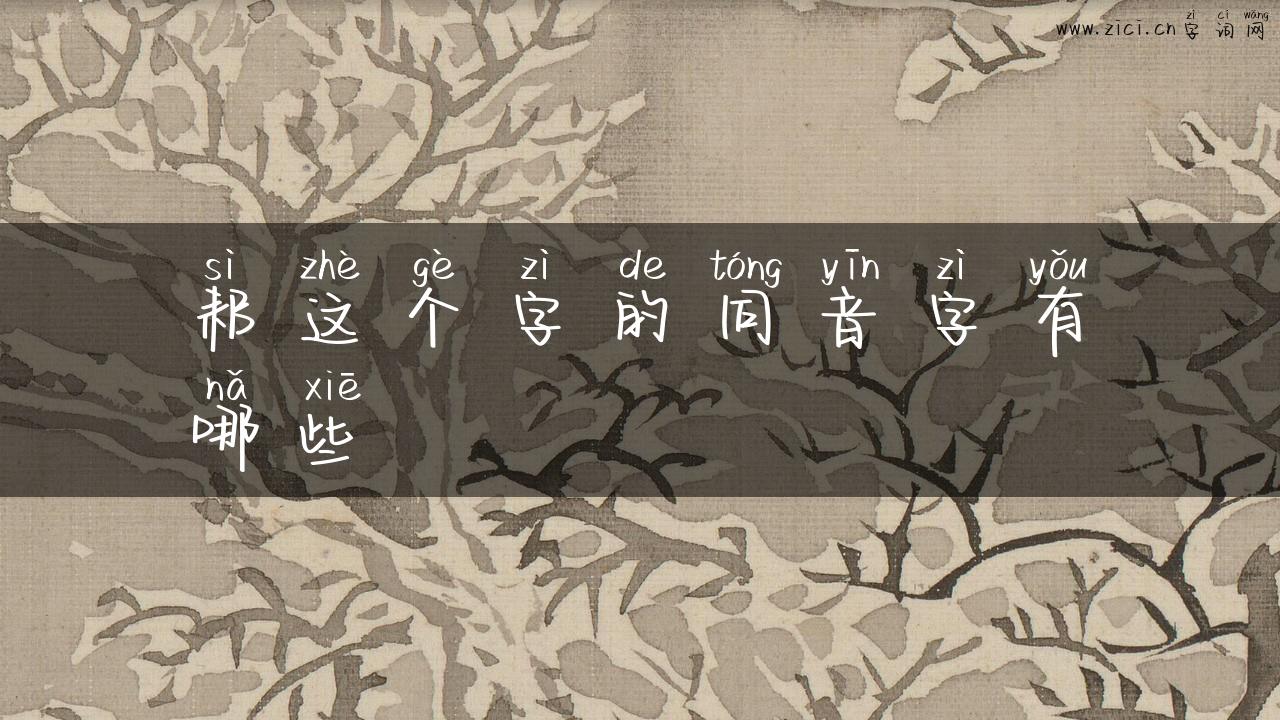 www.zici.cn zì cí wǎng
字 词 网
sì zhè gè zì de tóng yīn zì yǒu
耜 这 个 字 的 同 音 字 有
nǎ xiē
哪 些